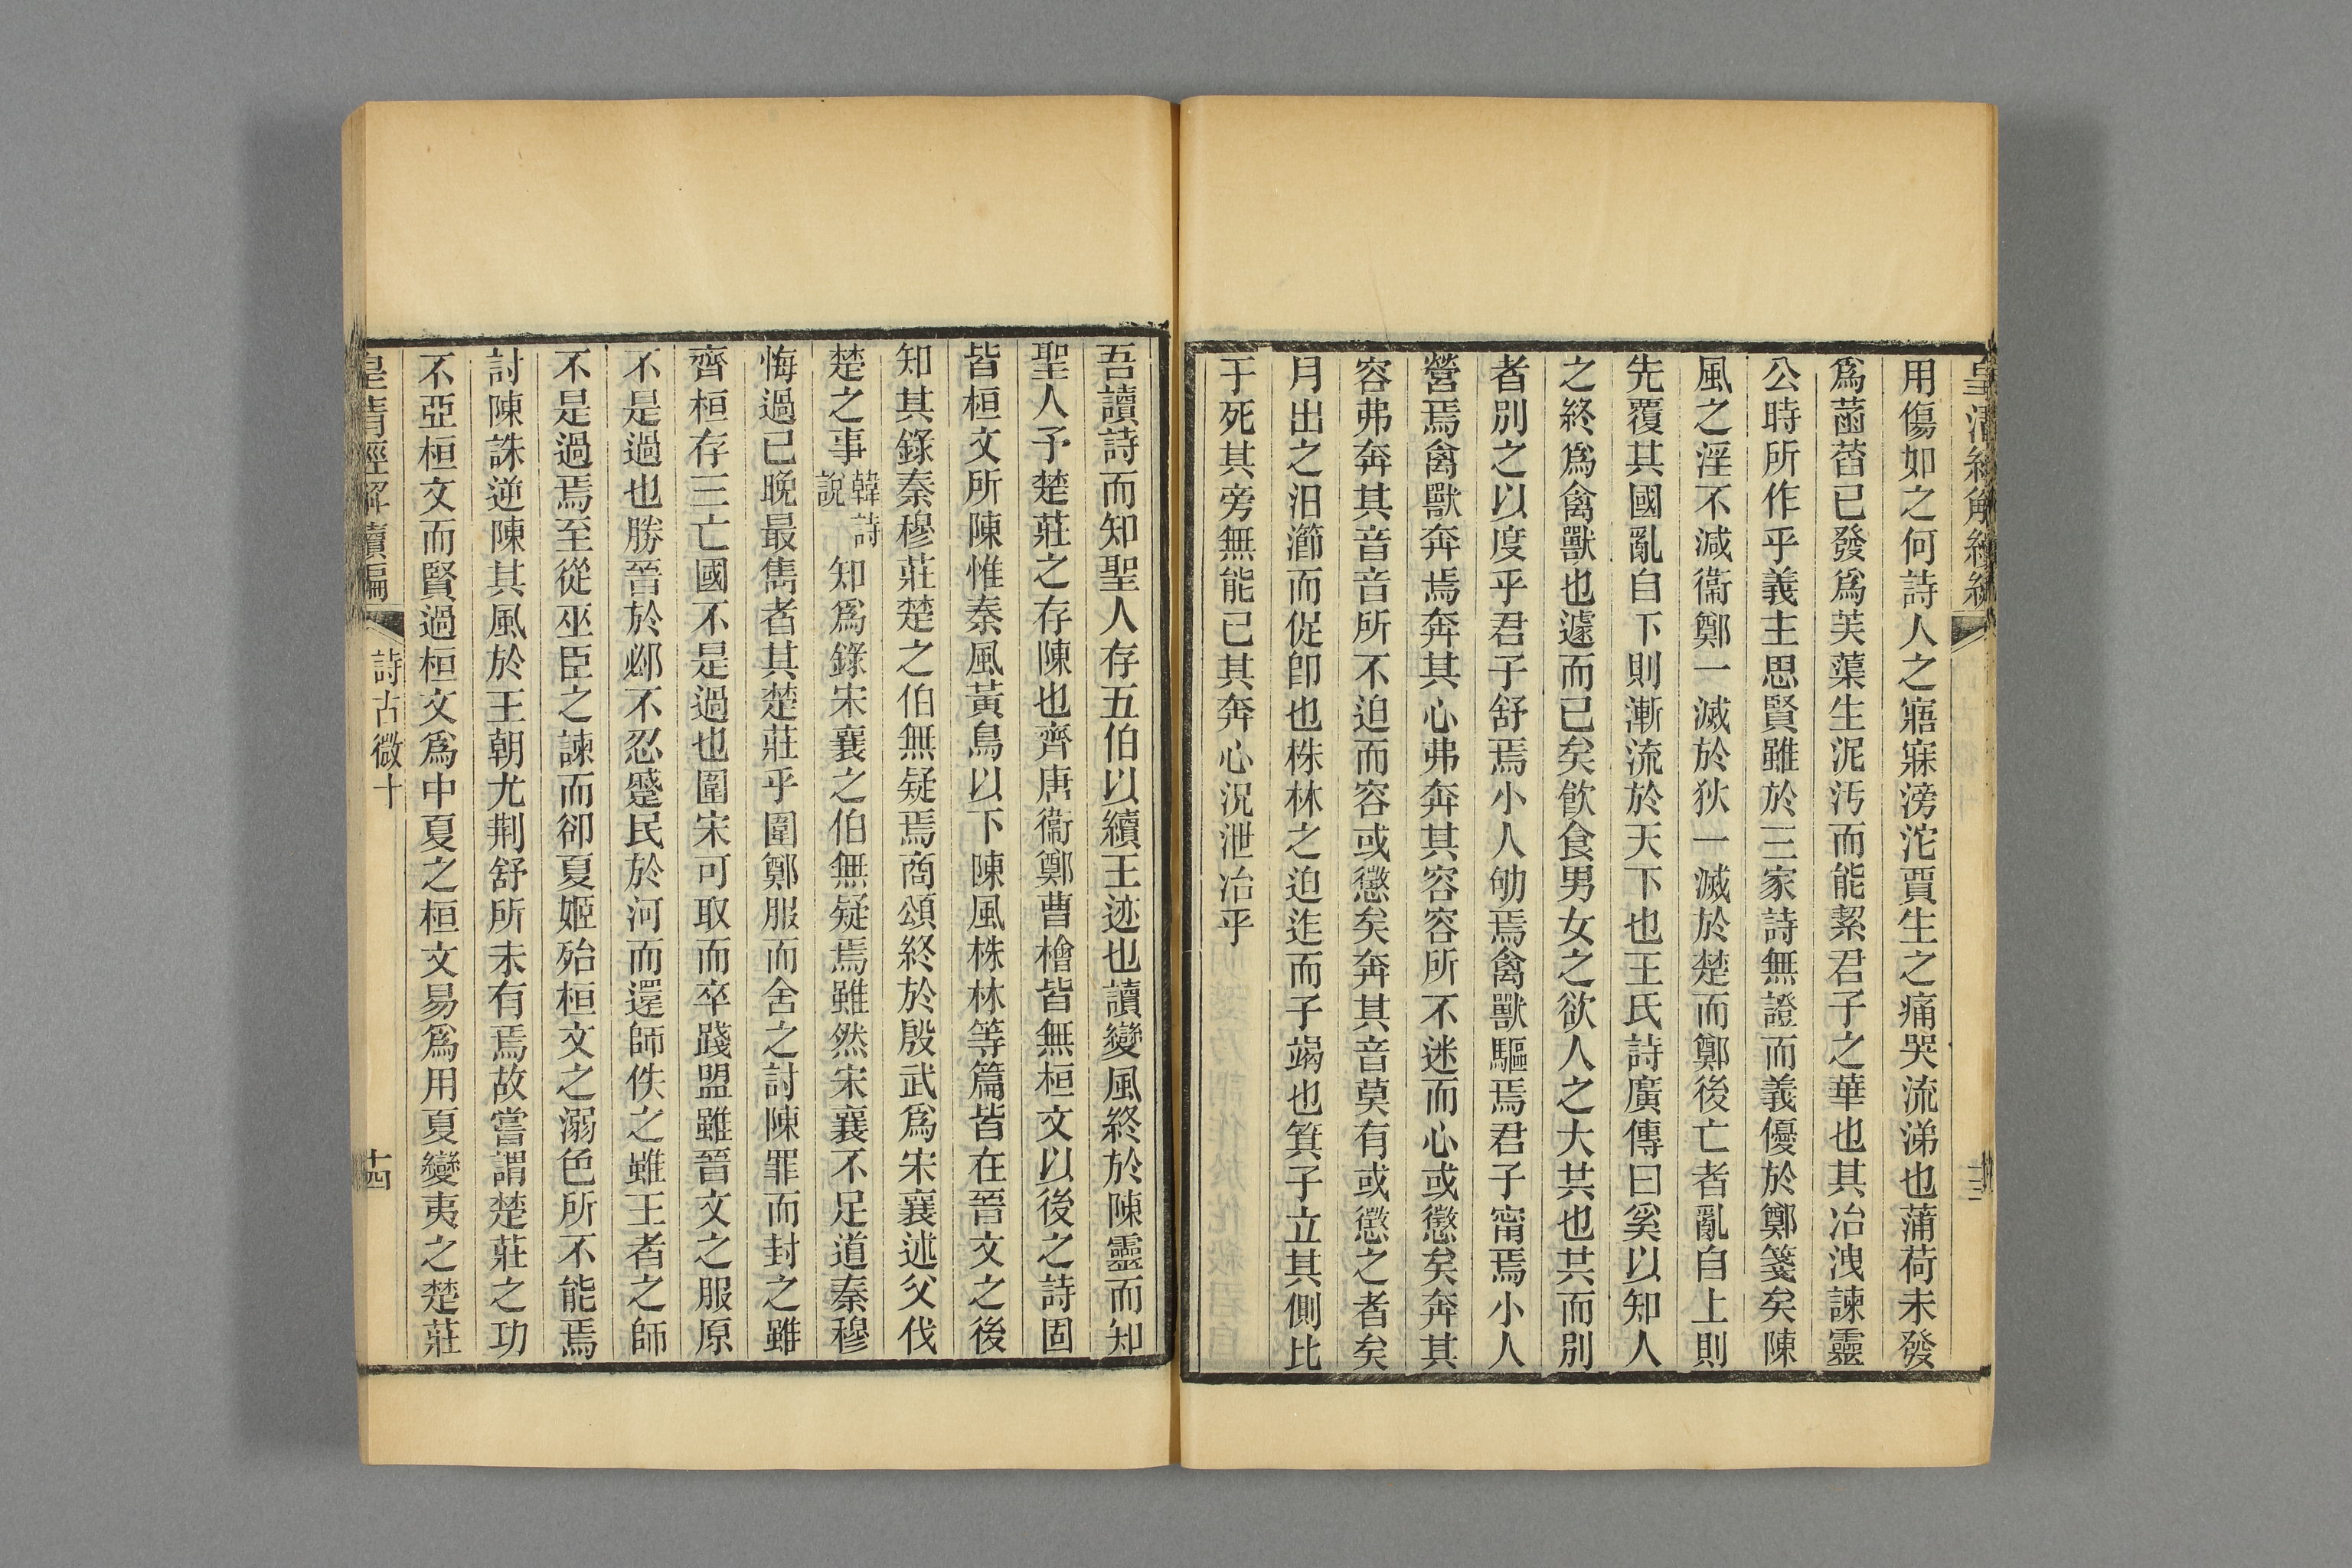 皇清經解續編
十三
用傷如之何詩人之寤寐滂沱賈生之痛哭流涕也蒲荷未發
爲菡萏已發爲芙蕖生泥汚而能絜君子之華也其冶洩諫靈
公時所作乎義主思賢雖於三家詩無證而義優於鄭箋矣陳
風之淫不減衞鄭一滅於狄一滅於楚而鄭後亡者亂自上則
先覆其國亂自下則漸流於天下也王氏詩廣傳曰奚以知人
之終爲禽獸也遽而已矣飮食男女之欲人之大共也共而別
者別之以度乎君子舒焉小人劬焉禽獸驅焉君子甯焉小人
營焉禽獸奔焉奔其心弗奔其容容所不迷而心或懲矣奔其
容弗奔其音音所不迫而容或懲矣奔其音莫有或懲之者矣
月出之汨灂而促卽也株林之迫迮而子竭也箕子立其側比
于死其旁無能已其奔心況泄冶乎
吾讀詩而知聖人存五伯以續王迹也讀變風終於陳靈而知
聖人予楚莊之存陳也齊唐衞鄭曹檜皆無桓文以後之詩固
皆桓文所陳惟秦風黃鳥以下陳風株林等篇皆在晉文之後
知其錄秦穆莊楚之伯無疑焉商頌終於殷武爲宋襄述父伐
楚之事韓詩說知爲錄宋襄之伯無疑焉雖然宋襄不足道秦穆
悔過已晚最雋者其楚莊乎圍鄭服而舍之討陳罪而封之雖
齊桓存三亡國不是過也圍宋可取而卒踐盟雖晉文之服原
不是過也勝晉於邲不忍蹙民於河而還師佚之雖王者之師
不是過焉至從巫臣之諫而卻夏姬殆桓文之溺色所不能焉
討陳誅逆陳其風於王朝尤荆舒所未有焉故嘗謂楚莊之功
不亞桓文而賢過桓文爲中夏之桓文易爲用夏變夷之楚莊
皇清經解續編
詩古微十
十四